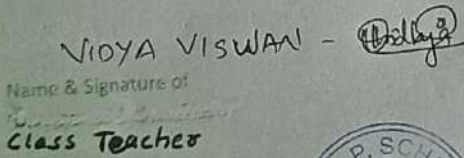 VIDYA VISWAN - Vidhya
Name & Signature of
Class Teacher
P. SCH